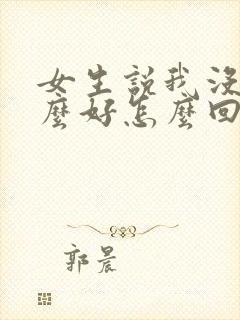 女生説我沒
麼好怎麼回
郭晨